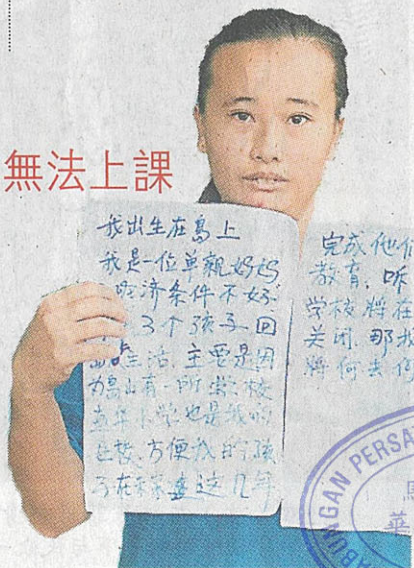 無法上課
我出生在島上
我是一位单親妈妈
经济条件不好
3个孩子回
岛生活,主要是因
为島山有一所学校
华小学也是我的
母校,方便我的孩
子在未来这几年
完成他们
教育,
学校将在
关闭,那我
将何去何
GABUNGAN PERSA
馬
華